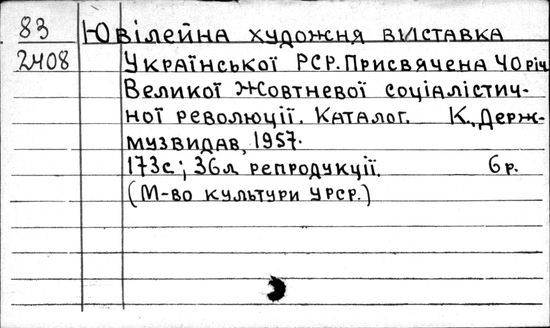 83 Ювілейна художня виставка
2408 Української РСР. Присвячена 40 річ
Великої Жовтневої соціалістич-
ної революції. Каталог. К., Держ-
музвидав, 1957.
173с; 36л репродукції. 6р.
(М-во культури УРСР.)